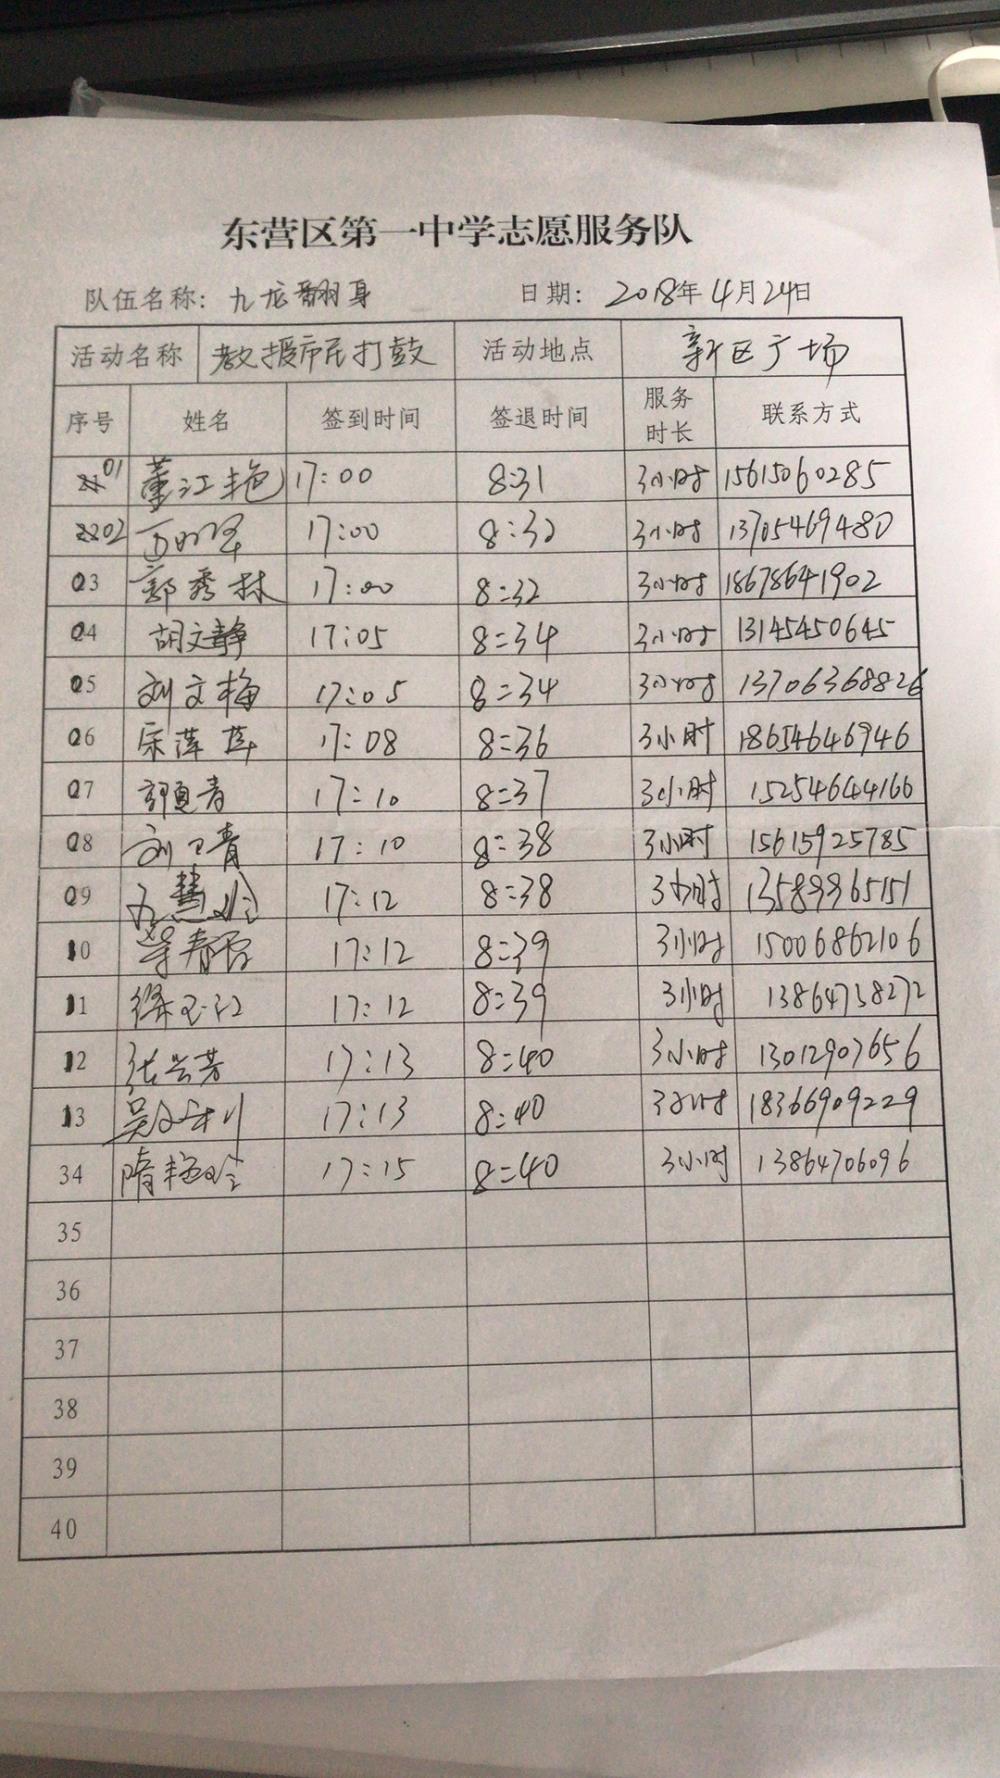 东营区第一中学志愿服务队
队伍名称: 九龙翻身 日期: 2018年4月24日
活动名称 教授市民打鼓 活动地点 新区广场
序号 姓名 签到时间 签退时间 服务时长 联系方式
01 董江艳 17:00 8:31 3小时 15615060285
02 17:00 8:32 3小时 13705469480
03 郭秀林 17:00 8:32 3小时 18678641902
04 胡文静 17:05 8:34 3小时 13145450645
05 刘文梅 17:05 8:34 3小时 13706368826
06 宋萍萍 17:08 8:36 3小时 18654646946
07 17:10 8:37 3小时 15254644166
08 刘卫青 17:10 8:38 3小时 15615925785
09 17:12 8:38 3小时 13589965151
10 17:12 8:39 3小时 15006862106
11 徐玉红 17:12 8:39 3小时 13864738272
12 张兰芳 17:13 8:40 3小时 13012907656
13 17:13 8:40 3小时 18366909229
34 隋艳玲 17:15 8:40 3小时 13864706096
35
36
37
38
39
40